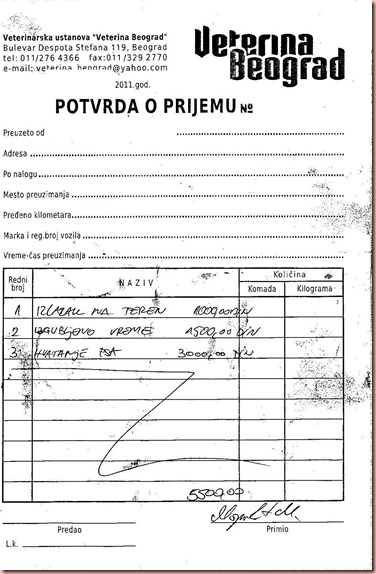 Veterinarska ustanova "Veterina Beograd"
Bulevar Despota Stefana 119, Beograd
tel: 011/276 4366 fax:011/329 2770
e-mail: veterina_beograd@yahoo.com
Veterina
Beograd
2011.god.
POTVRDA O PRIJEMU №
Preuzeto od
Adresa
Po nalogu
Mesto preuzimanja
Pređeno kilometara
Marka i reg.broj vozila
Vreme-čas preuzimanja
Redni broj NAZIV Količina
Komada Kilograma
1 IZLAZAK NA TEREN 1000,00 DIN
2 IZGUBLJENO VREME 1500,00 DIN
3 HVATANJE PSA 3.000,00 DIN
5500,00
Predao Primio
L.k.